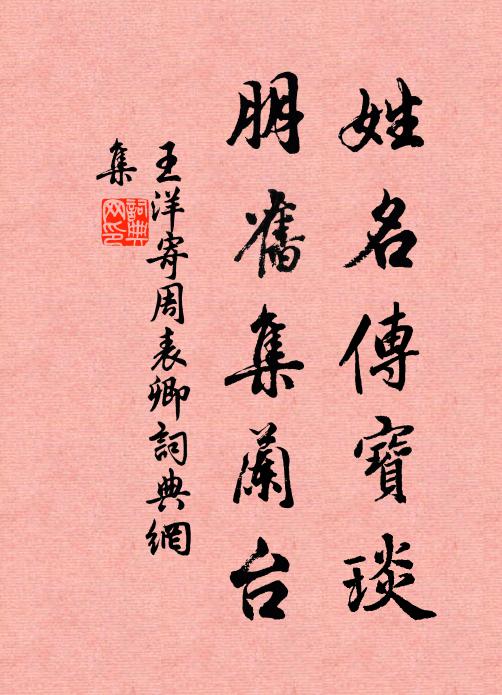 姓名傳寶琰
朋舊集蘭台
王洋寄周表卿詞典網
集
詞典
网印